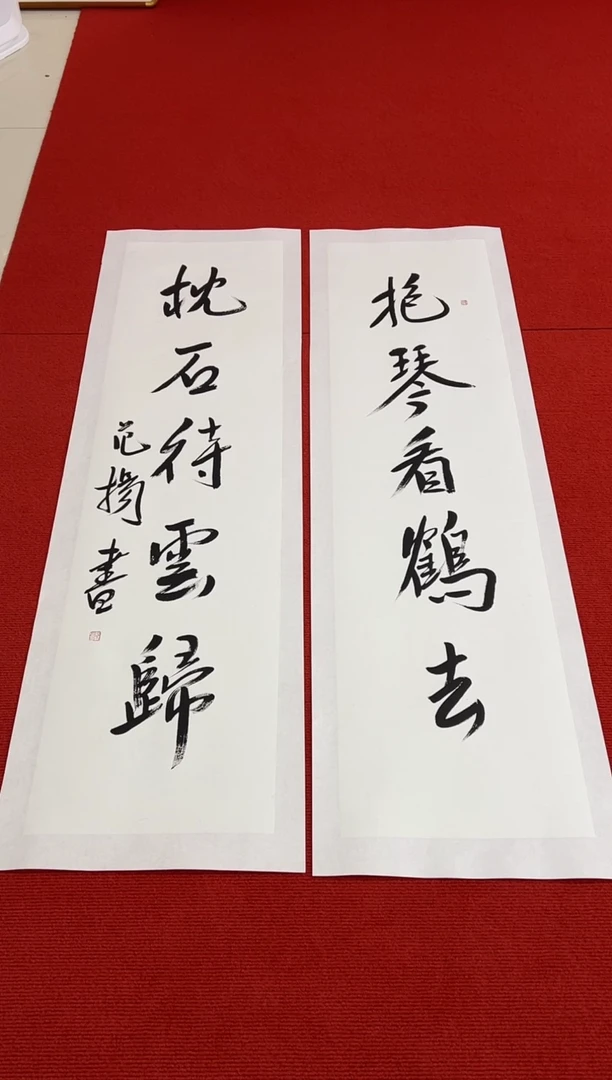 抱琴看鶴去
枕石待雲歸
范
書